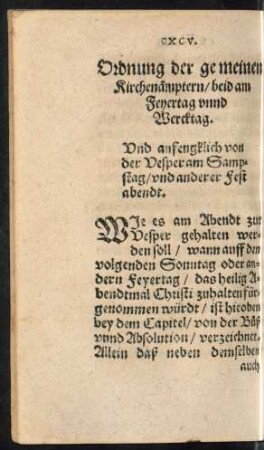 CXCV.
Ordnung der gemeinen
Kirchenämptern / beid am
Feyertag vnnd
Wercktag.
Vnd anfengklich von
der Vesper am Samp-
stag / vnd anderer Fest
abendt.
WJe es am Abendt zur
Vesper gehalten wer-
den soll / wann auff den
volgenden Sonntag oder an-
dern Feyertag / das heilig A-
bendtmal Christi zuhalten für-
genommen würdt / ist hieoben
bey dem Capitel / von der Büß
vnnd Absolution / verzeichnet.
Allein daß neben demselben
auch